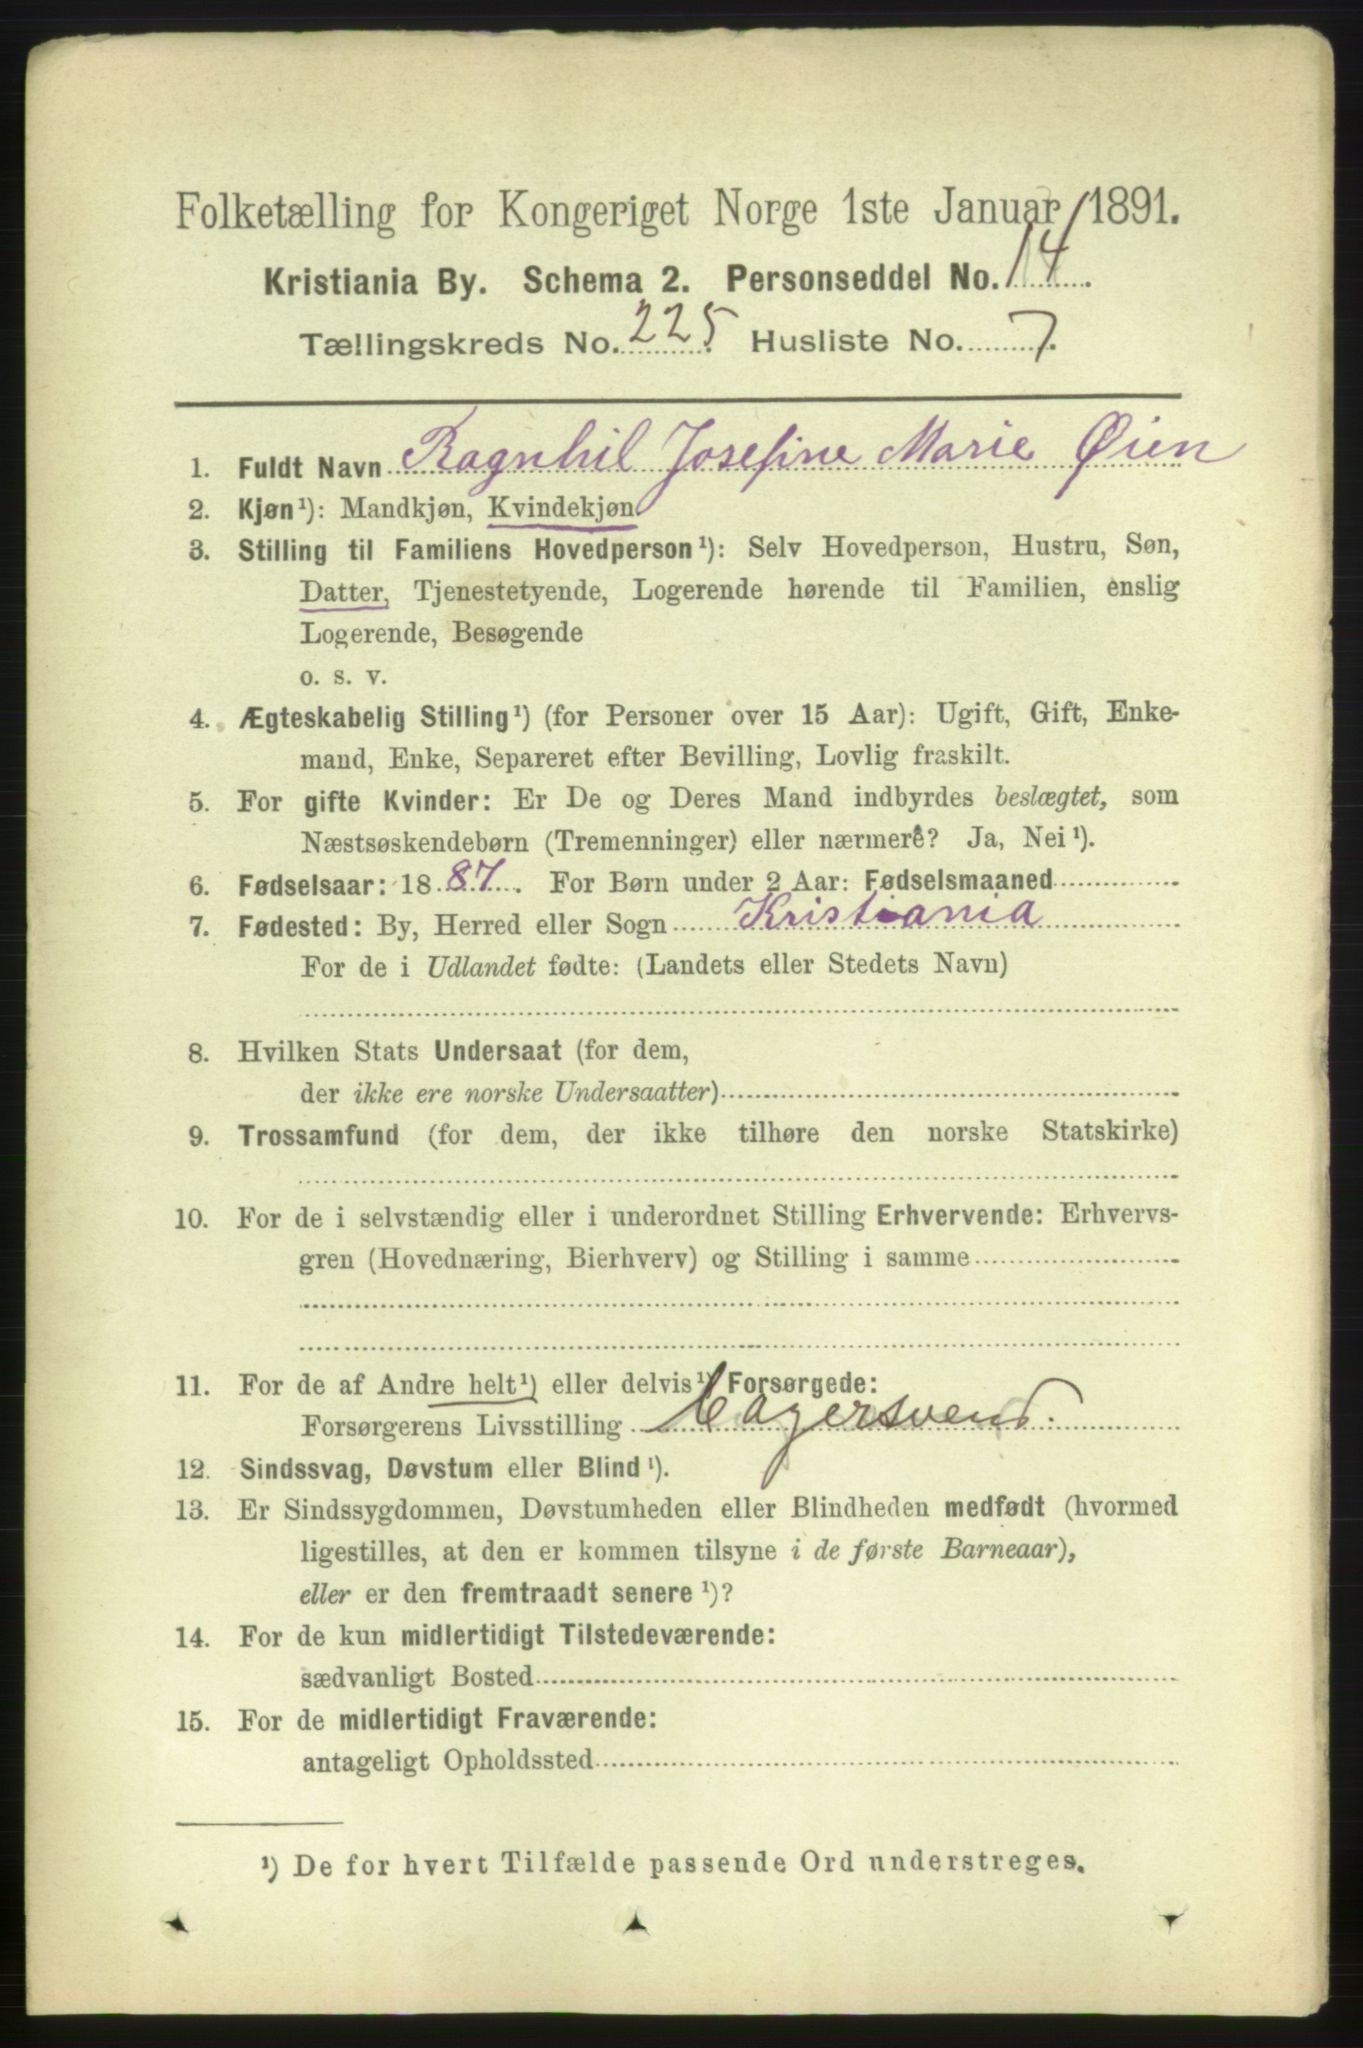 Folketælling for Kongeriget Norge 1ste Januar 1891.
Kristiania By. Schema 2. Personseddel No. 14.
Tællingskreds No. 225. Husliste No. 7.
1. Fuldt Navn Ragnhil Josefine Marie Øien
2. Kjøn¹): Mandkjøn, Kvindekjøn.
3. Stilling til Familiens Hovedperson¹): Selv Hovedperson, Hustru, Søn,
Datter, Tjenestetyende, Logerende hørende til Familien, enslig
Logerende, Besøgende
o. s. v.
4. Ægteskabelig Stilling¹) (for Personer over 15 Aar): Ugift, Gift, Enke-
mand, Enke, Separeret efter Bevilling, Lovlig fraskilt.
5. For gifte Kvinder: Er De og Deres Mand indbyrdes beslægtet, som
Næstsøskendebørn (Tremenninger) eller nærmere? Ja, Nei¹).
6. Fødselsaar: 1887. For Børn under 2 Aar: Fødselsmaaned
7. Fødested: By, Herred eller Sogn Kristiania
For de i Udlandet fødte: (Landets eller Stedets Navn)
8. Hvilken Stats Undersaat (for dem,
der ikke ere norske Undersaatter)
9. Trossamfund (for dem, der ikke tilhøre den norske Statskirke)
10. For de i selvstændig eller i underordnet Stilling Erhvervende: Erhvervs-
gren (Hovednæring, Bierhverv) og Stilling i samme
11. For de af Andre helt¹) eller delvis¹) Forsørgede:
Forsørgerens Livsstilling Bagersvend.
12. Sindssvag, Døvstum eller Blind¹).
13. Er Sindssygdommen, Døvstumheden eller Blindheden medfødt (hvormed
ligestilles, at den er kommen tilsyne i de første Barneaar),
eller er den fremtraadt senere¹)?
14. For de kun midlertidigt Tilstedeværende:
sædvanligt Bosted
15. For de midlertidigt Fraværende:
antageligt Opholdssted
¹) De for hvert Tilfælde passende Ord understreges.